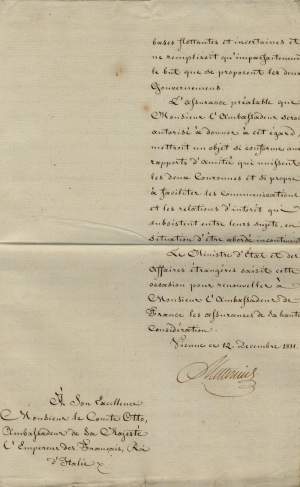 bases flottantes et incertaines et
ne rempliroit qu'imparfaitement
le but que se proposent les deux
Gouvernemens.
L'assurance préalable que
Monsieur l'Ambassadeur seroit
autorisé à donner à cet égard,
mettroit un objet si conforme aux
rapports d'Amitié qui unissent
les deux Couronnes et si propre
à faciliter les Communications
et les relations d'interêt qui
subsistent entre leurs sujets, en
situation d'être abordé incontinent.
Le Ministre d'Etat et des
Affaires étrangères saisit cette
occasion pour renouveller à
Monsieur l'Ambassadeur de
France les assurances de sa haute
Considération.
Vienne ce 12. Decembre 1811.
Metternich
À Son Excellence
Monsieur le Comte Otto,
Ambassadeur de Sa Majesté
l'Empereur des Français, Roi
d'Italie